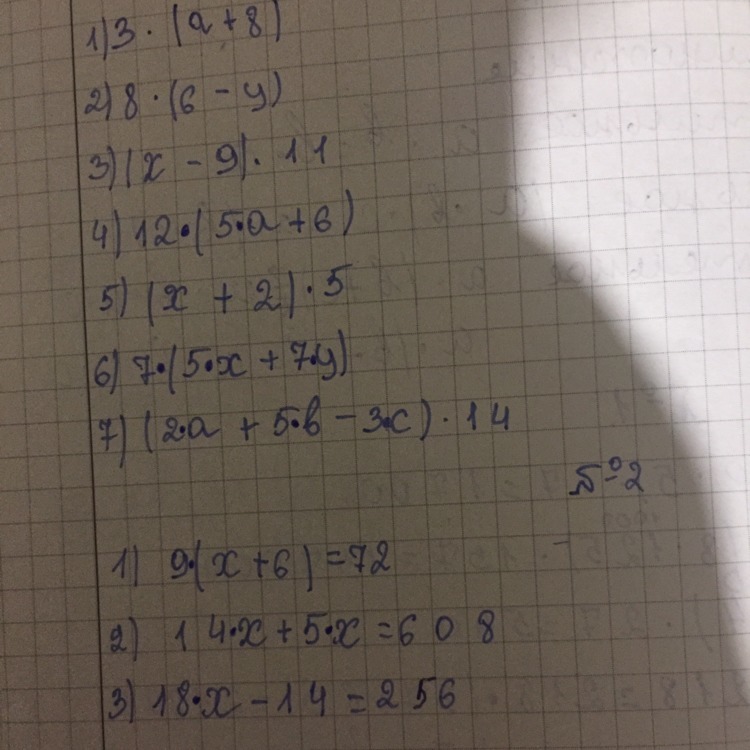 1) 3 · (a + 8)
2) 8 · (6 - y)
3) (x - 9) · 11
4) 12 · (5·a + 6)
5) (x + 2) · 5
6) 7 · (5·x + 7·y)
7) (2·a + 5·b - 3·c) · 14
№2
1) 9·(x + 6) = 72
2) 14·x + 5·x = 608
3) 18·x - 14 = 256